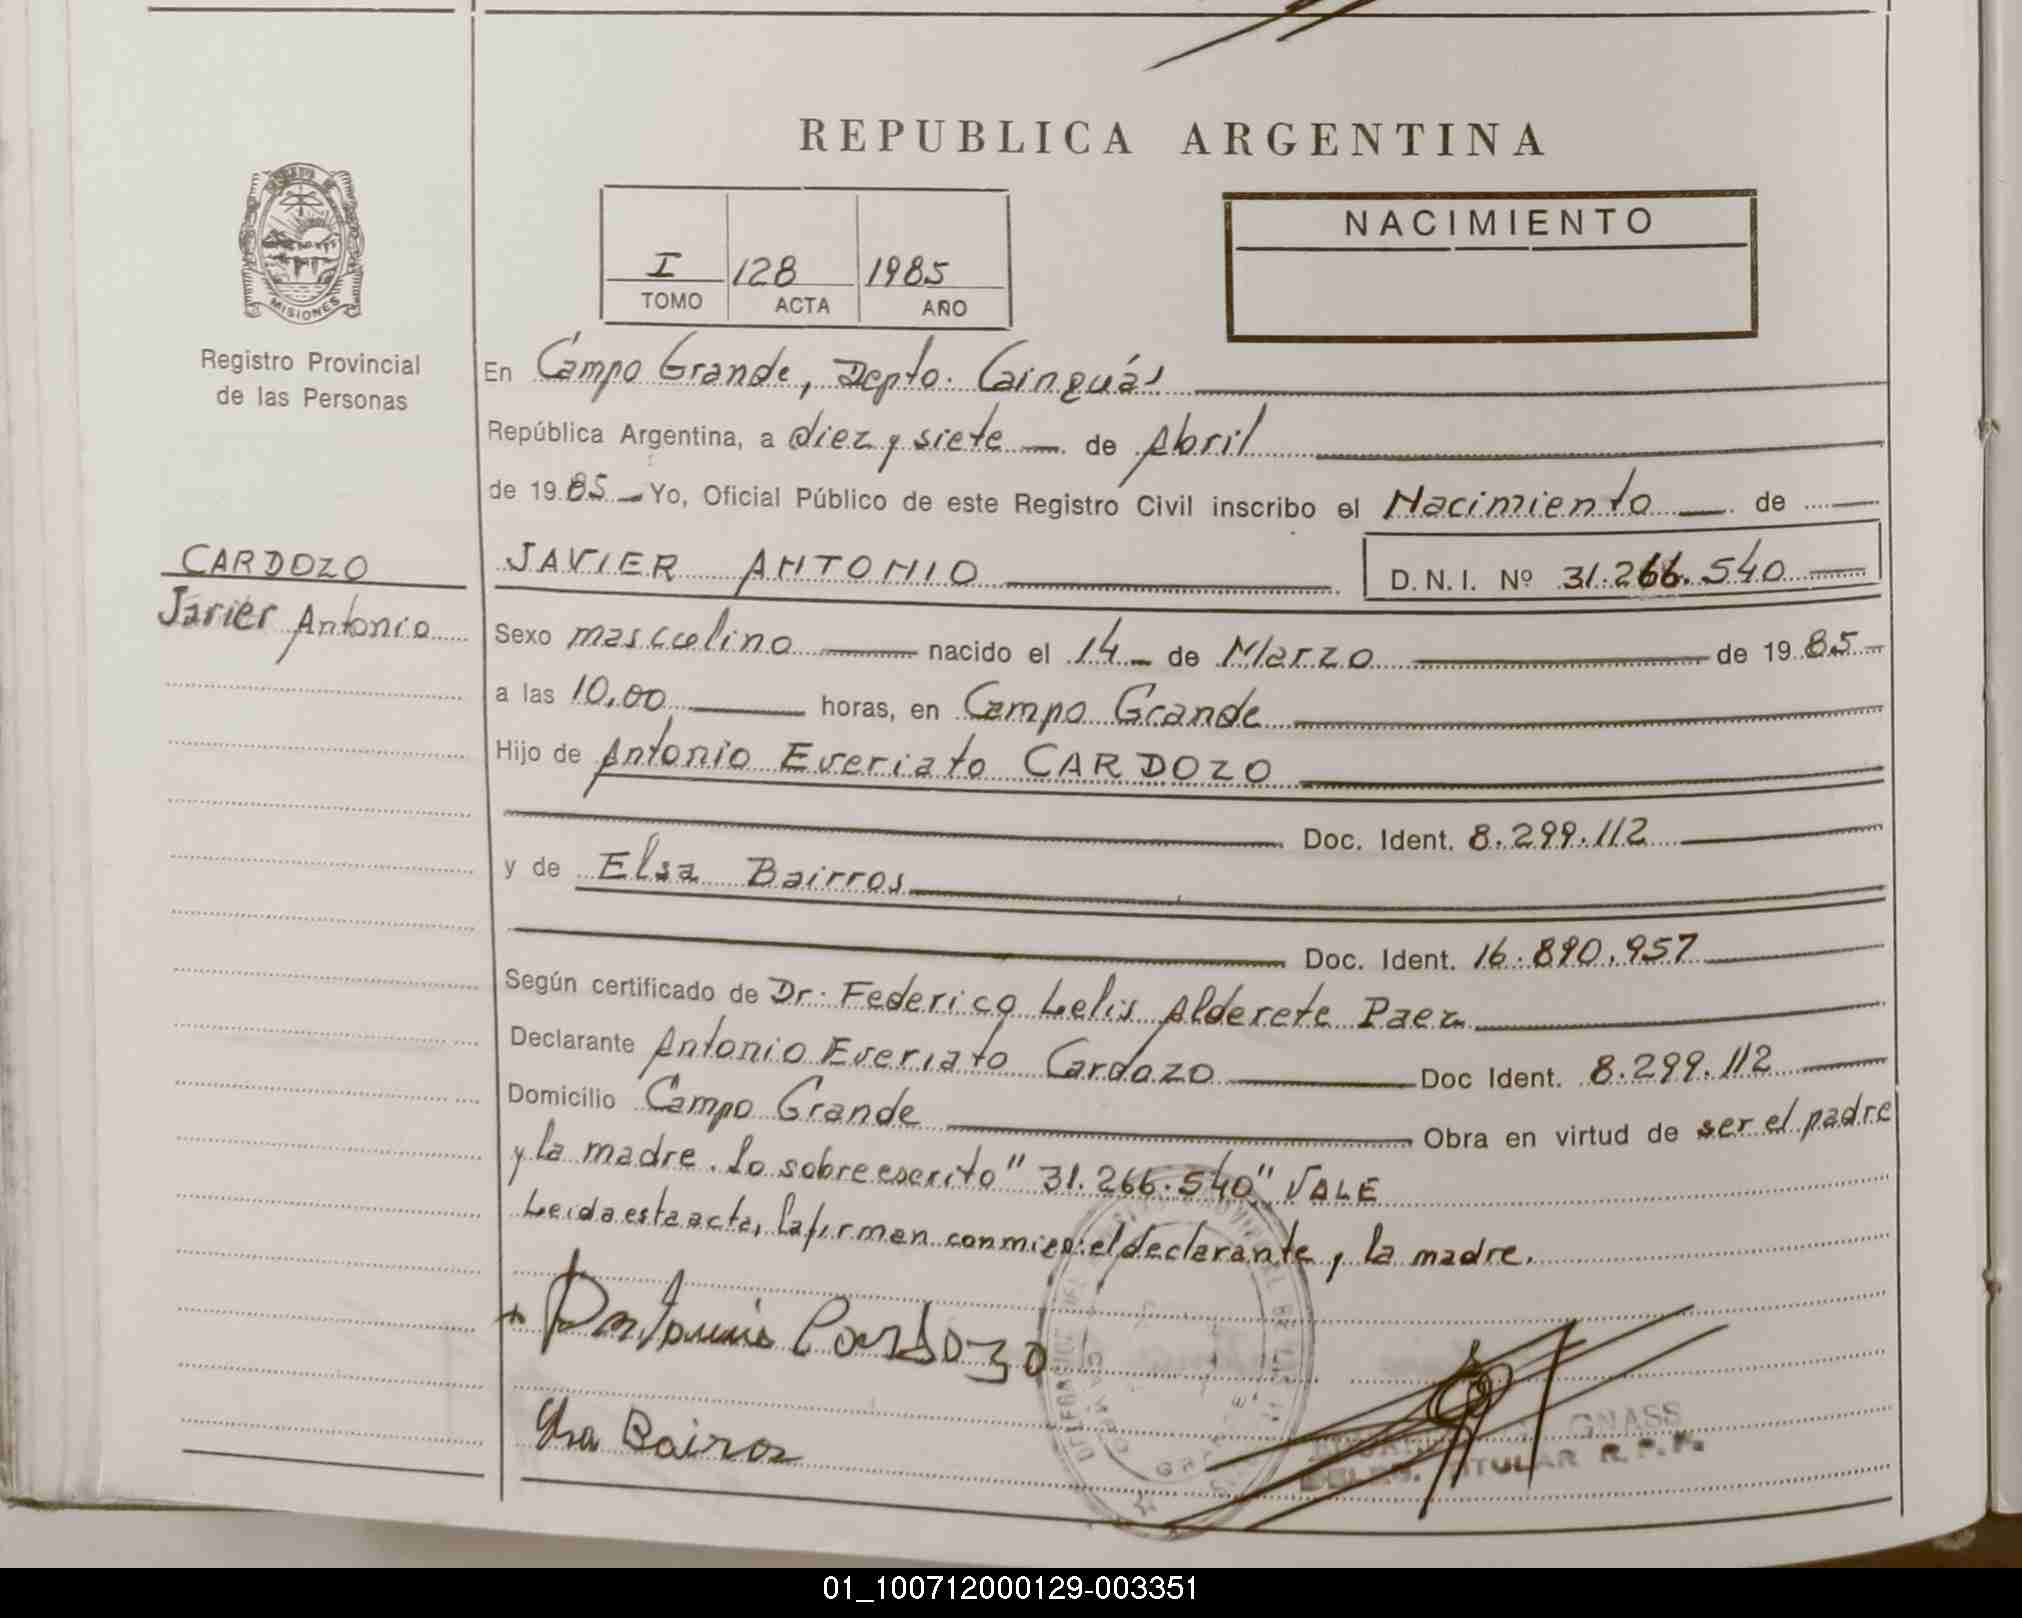 REPUBLICA ARGENTINA
MISIONES
Registro Provincial
de las Personas
I 128 1985
TOMO ACTA AÑO
NACIMIENTO
En Campo Grande, Depto. Cainguás
República Argentina, a diez y siete — de Abril
de 1985 — Yo, Oficial Público de este Registro Civil inscribo el Nacimiento — de
CARDOZO
Javier Antonio
JAVIER ANTONIO D.N.I. Nº 31.266.540
Sexo masculino — nacido el 14 — de Marzo — de 1985
a las 10,00 — horas, en Campo Grande
Hijo de Antonio Everiato CARDOZO
Doc. Ident. 8.299.112
y de Elsa Bairros
Doc. Ident. 16.890.957
Según certificado de Dr. Federico Lelis Alderete Paez
Declarante Antonio Everiato Cardozo — Doc Ident. 8.299.112
Domicilio Campo Grande — Obra en virtud de ser el padre
y la madre. Lo sobreescrito "31.266.540" VALE
Leida esta acta, la firman conmigo: el declarante y la madre.
Antonio Cardozo
Elsa Bairros
GNASS
TITULAR R.P.P.
CAMPO GRANDE
01_100712000129-003351